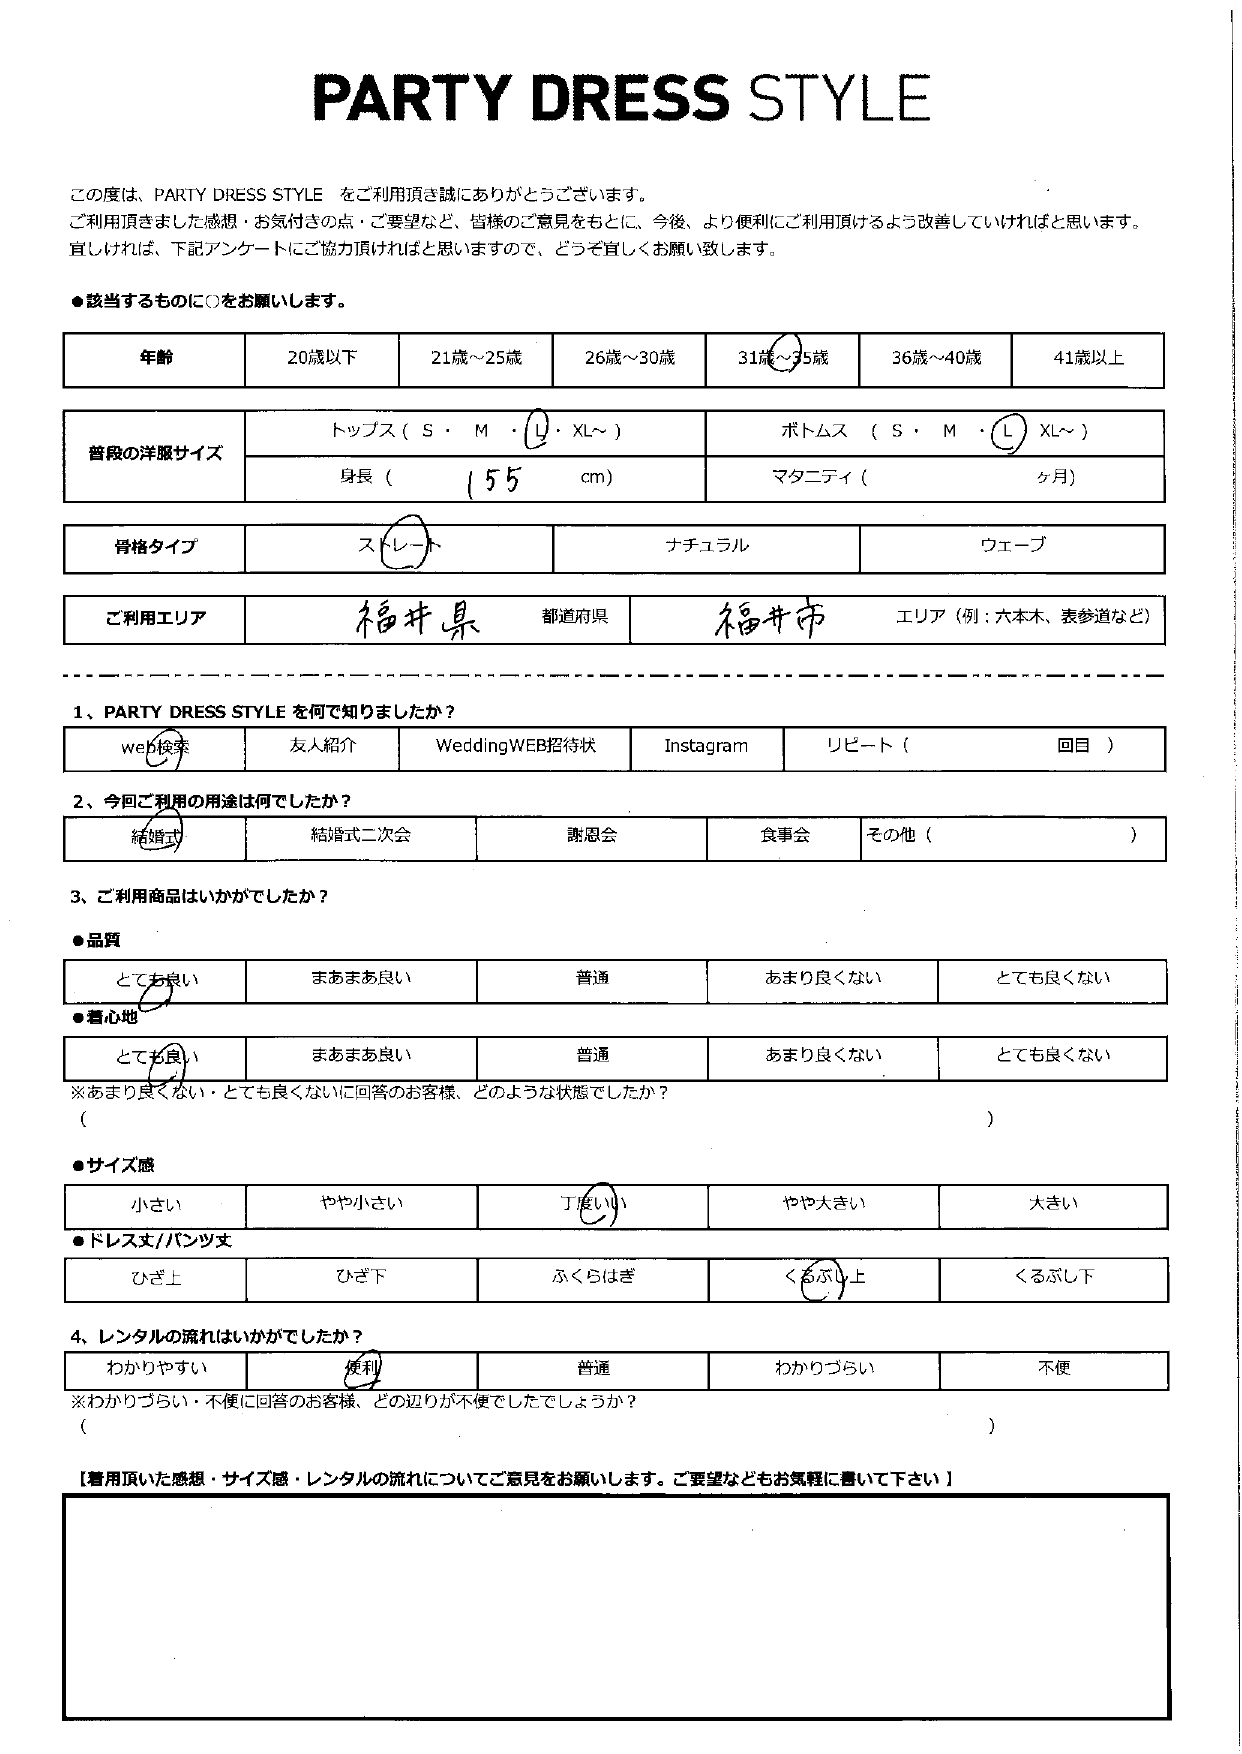 PARTY DRESS STYLE
この度は、PARTY DRESS STYLE をご利用頂き誠にありがとうございます。
ご利用頂きました感想・お気付きの点・ご要望など、皆様のご意見をもとに、今後、より便利にご利用頂けるよう改善していければと思います。
宜しければ、下記アンケートにご協力頂ければと思いますので、どうぞ宜しくお願い致します。
●該当するものに○をお願いします。
年齢 20歳以下 21歳～25歳 26歳～30歳 31歳～35歳 36歳～40歳 41歳以上
普段の洋服サイズ トップス ( S ・ M ・ L ・ XL～ ) ボトムス ( S ・ M ・ L XL～ )
身長 ( 155 cm) マタニティ ( ヶ月)
骨格タイプ ストレート ナチュラル ウェーブ
ご利用エリア 福井県 都道府県 福井市 エリア（例：六本木、表参道など）
1、PARTY DRESS STYLE を何で知りましたか？
web検索 友人紹介 WeddingWEB招待状 Instagram リピート ( 回目 )
2、今回ご利用の用途は何でしたか？
結婚式 結婚式二次会 謝恩会 食事会 その他 ( )
3、ご利用商品はいかがでしたか？
●品質
とても良い まあまあ良い 普通 あまり良くない とても良くない
●着心地
とても良い まあまあ良い 普通 あまり良くない とても良くない
※あまり良くない・とても良くないに回答のお客様、どのような状態でしたか？
( )
●サイズ感
小さい やや小さい 丁度いい やや大きい 大きい
●ドレス丈/パンツ丈
ひざ上 ひざ下 ふくらはぎ くるぶし上 くるぶし下
4、レンタルの流れはいかがでしたか？
わかりやすい 便利 普通 わかりづらい 不便
※わかりづらい・不便に回答のお客様、どの辺りが不便でしたでしょうか？
( )
【着用頂いた感想・サイズ感・レンタルの流れについてご意見をお願いします。ご要望などもお気軽に書いて下さい 】